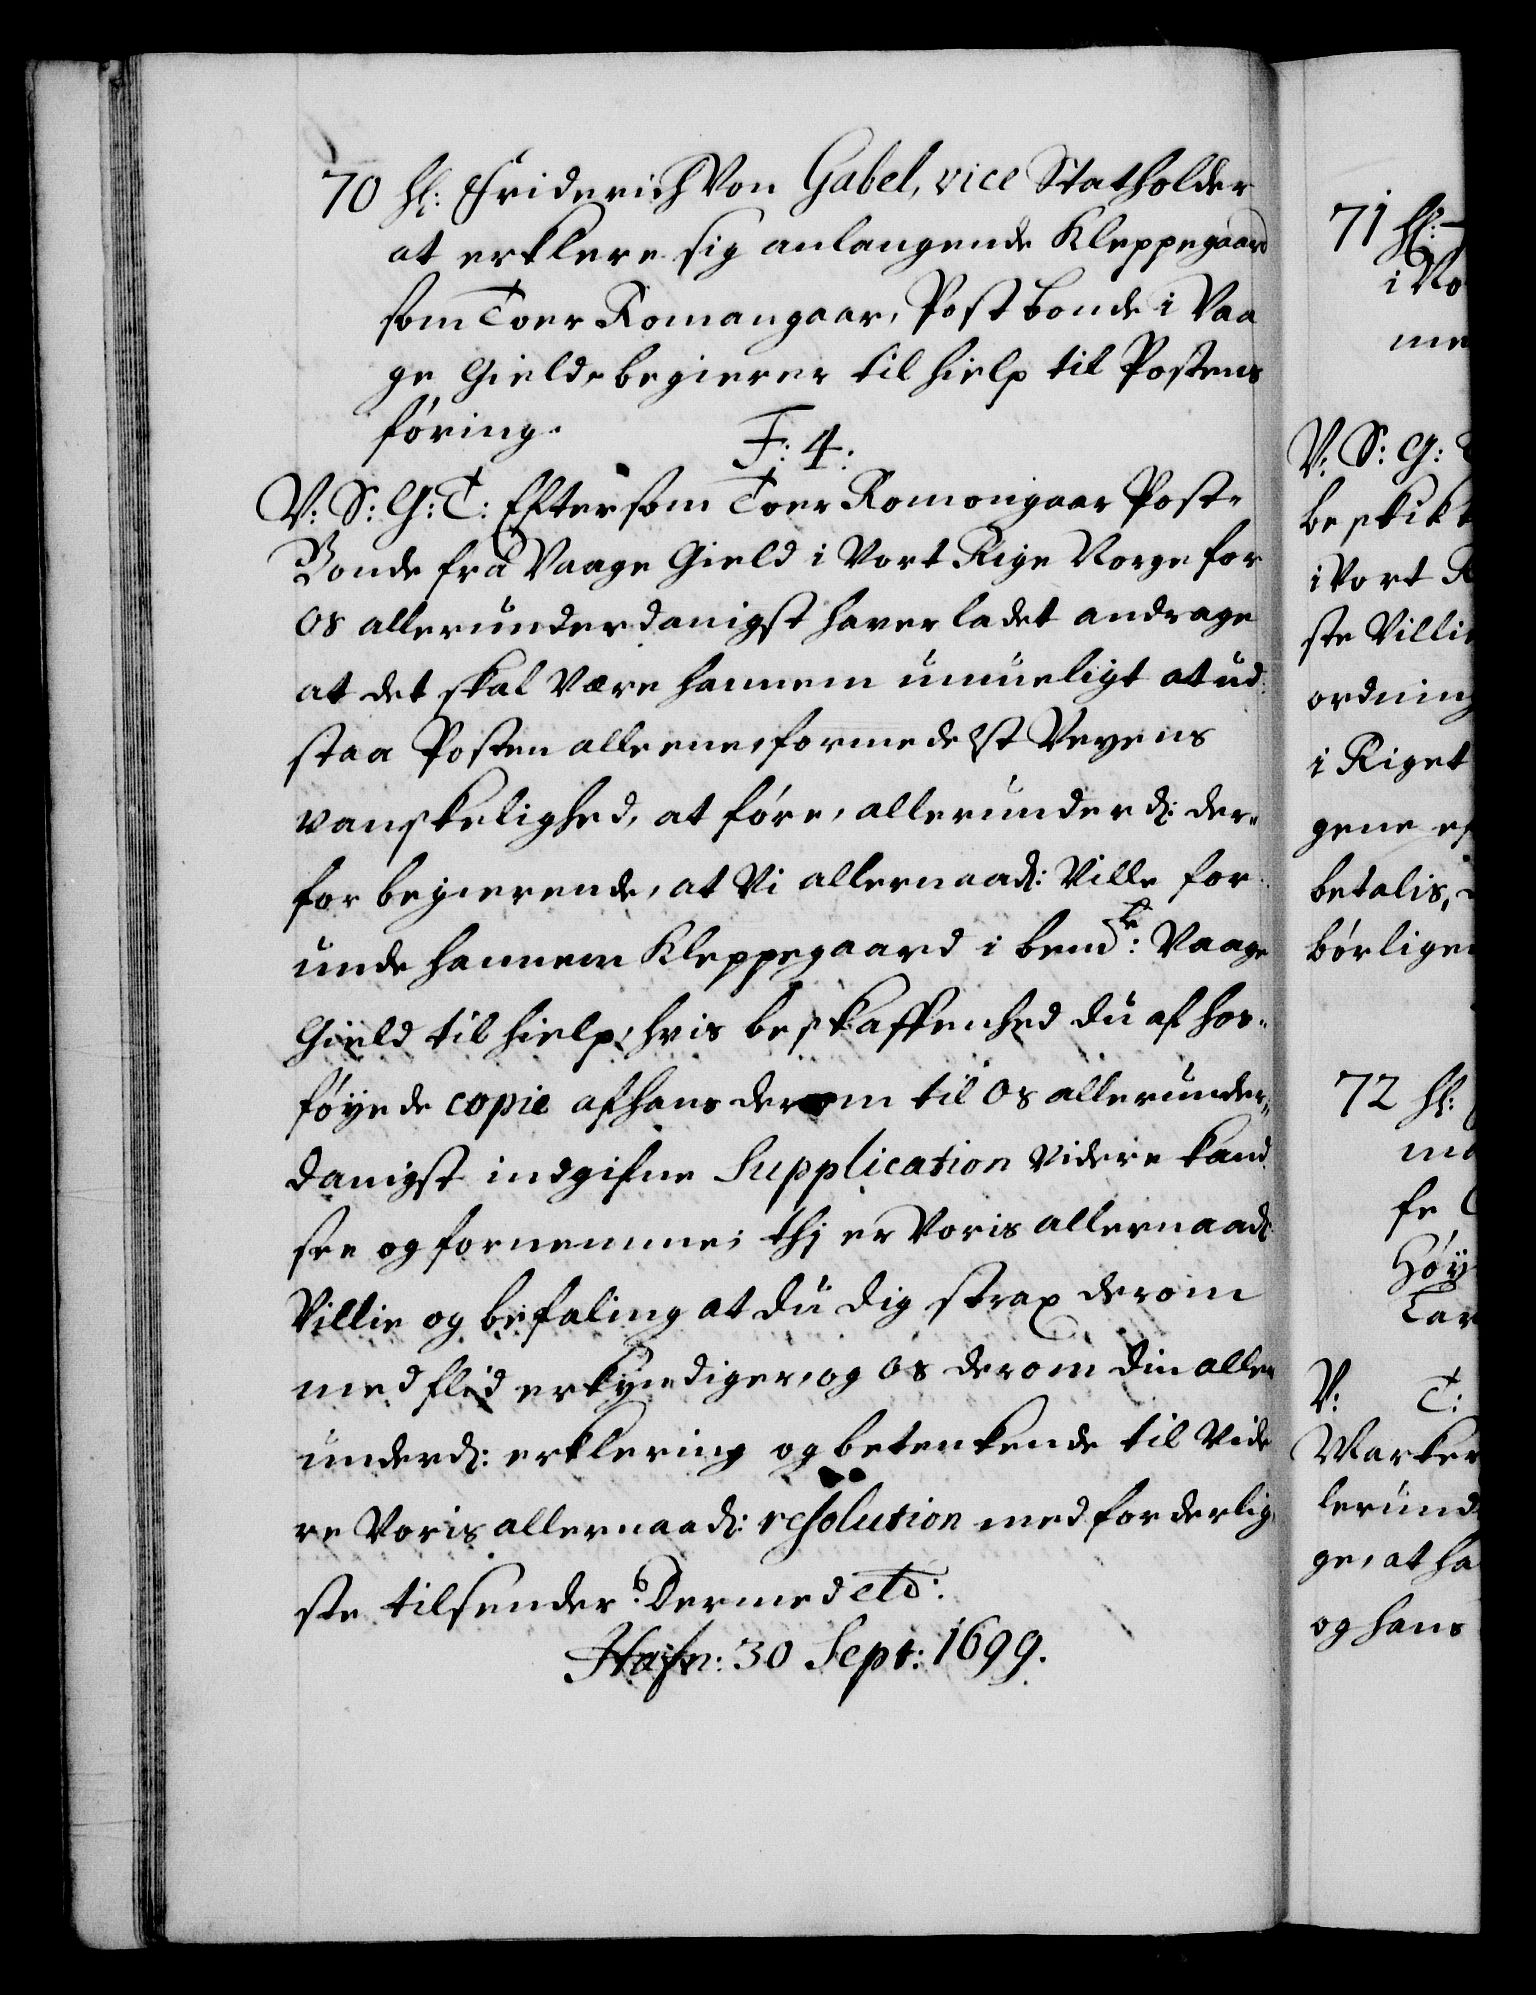 70 H: Friderich Von Gabel, vice Statholder
at erklere sig anlangende Kleppegaard
som Toer Romangaar, Post bonde i Vaa
ge Gield, begierer til hielp til Postens
föring.
F: 4:
V: S: G: T: Eftersom Toer Romongaar Post-
Bonde fra Vaage Gield i Vort Rige Norge for
os allerunderdanigst haver ladet andrage
at det skal være hannem umueligt at ud-
staa Posten alleene, formedelst Veyens
vanskelighed, at före, allerunderd: der-
for begierende, at Vi allernaad: Ville for-
unde hannem Kleppegaard i bemte: Vaage
Gield til hielp, hvis beskaffenhed du af hos-
föyede copie af hans derom til os allerunder-
danigst indgifne Supplication videre kand
see og fornemme; thj er Voris allernaad:
Villie og befaling at du dig strax derom
med flid erkyndiger, og os derom din aller
underd: erklering og betenkende til Vide
re Voris allernaad: resolution med forderlig-
ste tilsender. Dermed etc:
Hafn: 30 Sept: 1699.
71 H:
i No
me
V: S: G:
beskikt
i Vort R
ste Villie
ordning
i Riget
gene ef
betalis,
börligen
72 H:
ma
fe
Höy
Lar
V: T:
Marker
lerund
ge, at ha
og hans